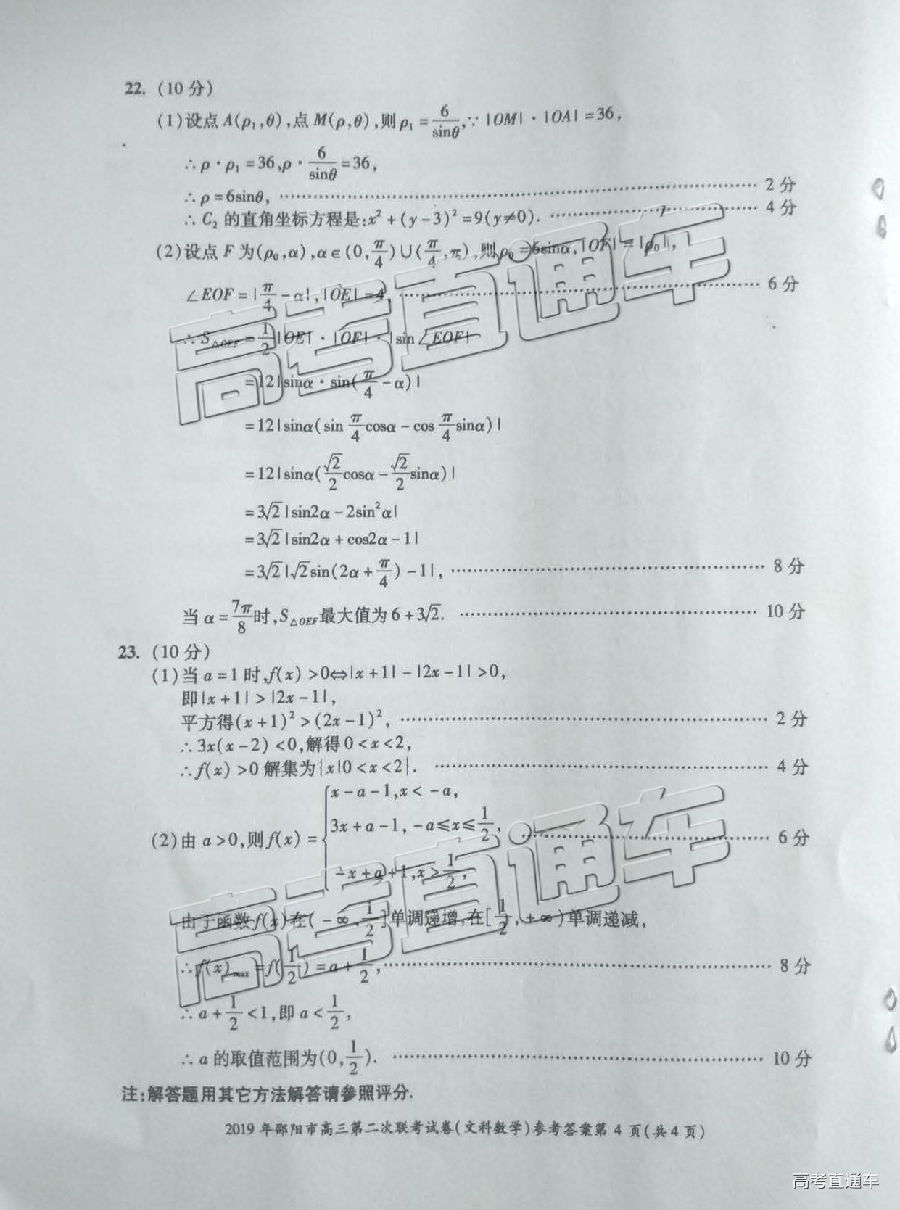 22. (10分)
(1)设点 A(ρ₁,θ),点 M(ρ,θ),则ρ₁ = 6/sinθ,∵ |OM| · |OA| = 36,
∴ρ · ρ₁ = 36,ρ · 6/sinθ = 36,
∴ρ = 6sinθ, ………… 2分
∴C₂ 的直角坐标方程是:x² + (y-3)² = 9(y≠0). ………… 4分
(2)设点 F 为(ρ₀,α),α∈(0,π/4)∪(π/4,π),则ρ₀ = 6sinα,|OF| = |ρ₀|,
∠EOF = |π/4 - α|,|OE| = 4, ………… 6分
∴S△OEF = 1/2|OE| · |OF| · |sin∠EOF|
= 12|sinα · sin(π/4 - α)|
= 12|sinα(sin π/4 cosα - cos π/4 sinα)|
= 12|sinα(√2/2 cosα - √2/2 sinα)|
= 3√2|sin2α - 2sin²α|
= 3√2|sin2α + cos2α - 1|
= 3√2|√2sin(2α + π/4) - 1|, ………… 8分
当 α = 7π/8时,S△OEF最大值为 6 + 3√2. ………… 10分
23. (10分)
(1)当 a = 1 时,f(x) > 0⇔|x + 1| - |2x - 1| > 0,
即|x + 1| > |2x - 1|,
平方得(x + 1)² > (2x - 1)², ………… 2分
∴3x(x - 2) < 0,解得 0 < x < 2,
∴f(x) > 0 解集为{x|0 < x < 2}. ………… 4分
x - a - 1,x < -a,
(2)由 a > 0,则 f(x) = { 3x + a - 1, -a≤x≤1/2, ………… 6分
-x + a + 1,x > 1/2,
由于函数 f(x)在( - ∞,1/2]单调递增,在[1/2, + ∞)单调递减,
∴f(x)max = f(1/2) = a + 1/2, ………… 8分
∴a + 1/2 < 1,即 a < 1/2,
∴a 的取值范围为(0,1/2). ………… 10分
注:解答题用其它方法解答请参照评分.
2019年邵阳市高三第二次联考试卷(文科数学)参考答案第 4 页(共 4 页)
高考直通车
高考直通车
高考直通车